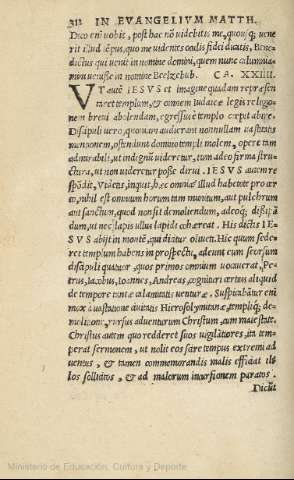 312 IN EVANGELIVM MATTH.
Dico enī vobis, post hac nō videbitis me, quousq; vene
rit illud tēpus, quo me videntes oculis fidei dicatis, Bene
dictus qui venit in nomine domini, quem nunc calumnia-
mini venisse in nomine Beelzebub. CA. XXIIII.
VT autē IESVS et imagine quadam repræsen
taret templum, & omnem Iudaicæ legis religio-
nem brevi abolendam, egressus è templo cœpit abire.
Discipuli vero, quoniam audierant nonnullam vastitatis
mentionem, ostendunt domino templi molem, opere tam
admirabili, ut indignū videretur, tam adeo firma stru-
ctura, ut non videretur posse dirui. IESVS autem re
spōdit, Videtis, inquit, hæc omnia? illud habetote pro cer
to, nihil est omnium horum tam munitum, aut pulchrum
aut sanctum, quod non sit demoliendum, adeoq; disiiciē
dum, ut nec lapis illus lapidi cohæreat. His dictis IE-
SVS abijt in montē, qui dicitur oliveti. Hic quum sede-
ret templum habens in prospectu, adeunt eum seorsum
discipuli quatuor, quos primos omnium vocaverat, Pe-
trus, Iacobus, Ioannes, Andreas, cognituri certius aliquid
de tempore tantæ calamitatis venturæ. Suspicabātur eni
mox à vastatione civitatis Hierosolymitanæ, templiq; de-
molitione, rursus adventurum Christum, cum maiestate.
Christus autem quo redderet suos vigilātiores, in tem-
perat sermonem, ut nolit eos scire tempus extremi ad
ventus, & tamen commemorandis malis efficiat il-
los sollicitos, & ad malorum incursionem paratos.
Dicūt
Ministerio de Educación, Cultura y Deporte